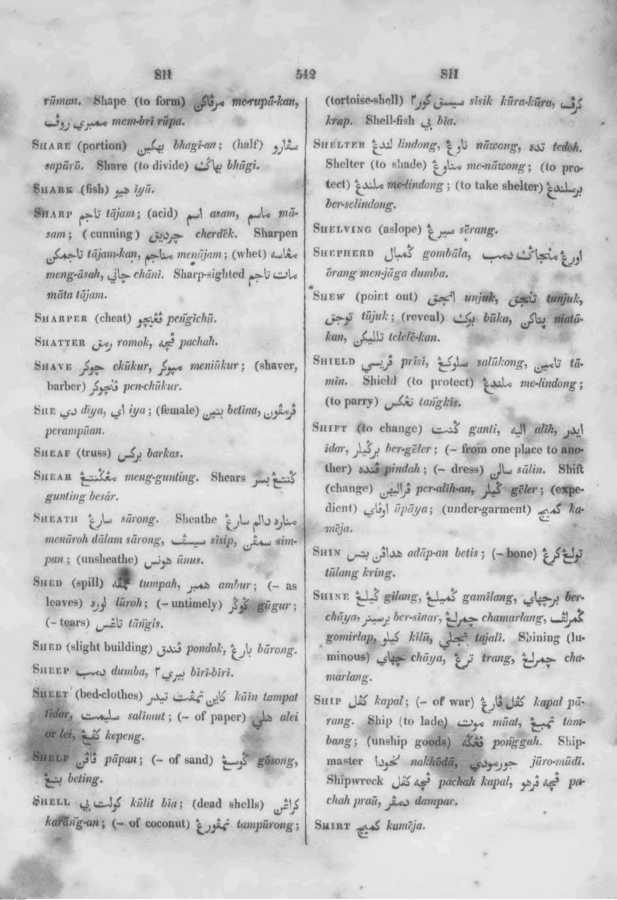 SH 542 SH
rūman. Shape (to form) مرڤاكن me-rupā-kan,
ممبري روڤ mem-bri rūpa.
SHARE (portion) بهگين bhagī-an; (half) سڤارو
sapārū. Share (to divide) بهاݢ bhāgi.
SHARK (fish) هيو iyū.
SHARP تاجم tājam; (acid) اسم asam, ماسم mā-
sam; (cunning) چرديق cherdēk. Sharpen
تاجمكن tājam-kan, مناجم menājam; (whet) مڠاسه
meng-āsah, چاني chānī. Sharp-sighted مات تاجم
māta tājam.
SHARPER (cheat) ڤڠيچو peñgīchū.
SHATTER رمق romok, ڤچه pachah.
SHAVE چوكر chūkur, منچوكر meniūkur; (shaver,
barber) ڤنچوكر pen-chūkur.
SHE دي diya, اي iya; (female) بتين betina, ڤرمڤون
perampūan.
SHEAF (truss) بركس barkas.
SHEAR مڠڬنتيڠ meng-gunting. Shears ڬنتيڠ بسر
gunting besār.
SHEATH سارڠ sārong. Sheathe مناره دالم سارڠ
menāroh dālam sārong, سيسڤ sīsip, سمڤن sim-
pan; (unsheathe) هونس ūnus.
SHED (spill) tumpah, همبر ambur; (– as
leaves) لوره lūroh; (– untimely) ڬوڬر gūgur;
(– tears) تاڠس tāñgis.
SHED (slight building) ڤندق pondok, بارڠ bārong.
SHEEP دمب dumba, بيري٢ bīri-bīri.
SHEET (bed-clothes) كاين تمڤت تيدر kāin tampat
tīdar, سليمت salimut; (– of paper) هلي alei
or lei, كڤڠ kepeng.
SHELF ڤاڤن pāpan; (– of sand) ڬوسڠ gūsong,
بتڠ beting.
SHELL كولت بي kūlit bīa; (dead shells) كراڠن
karāñg-an; (– of coconut) تمڤورڠ tampūrong;
(tortoise-shell) سيسق كور٢ sīsik kūra-kūra, كرڤ
krap. Shell-fish بي bīa.
SHELTER لندڠ lindong, ناوڠ nāwong, تده tedoh.
Shelter (to shade) مناوڠ me-nāwong; (to pro-
tect) ملندڠ me-lindong; (to take shelter) برسلندڠ
ber-selindong.
SHELVING (aslope) سيرڠ sērang.
SHEPHERD ڬمبال gombāla, اورڠ منجاݢ دمب
ōrang men-jāga dumba.
SHEW (point out) انجق unjuk, تنجق tunjuk,
توجق tūjuk; (reveal) بوك būka, پتاكن niatā-
kan, تلليكن telelē-kan.
SHIELD ڤريسي prīsi, سلوكڠ salūkong, تامين tā-
min. Shield (to protect) ملندڠ me-lindong;
(to parry) تڠكس tañgkis.
SHIFT (to change) ڬنت ganti, اليه alih, ايدر
īdar, برڬيلر ber-gēler; (– from one place to ano-
ther) ڤنده pindah; (– dress) سالن sālin. Shift
(change) ڤراليهن per-alih-an, ڬيلر gēler; (expe-
dient) اوڤاي ūpāya; (under-garment) كميج ka-
mēja.
SHIN هداڤن بتس adāp-an betis; (– bone) تولڠ كرڠ
tūlang kring.
SHINE ڬيلڠ gilang, ڬميلڠ gamilang, برچهاي ber-
chāya, برسينر ber-sīnar, چمرلڠ chamarlang, ڬمرلڤ
gomirlap, كيلو kīlū, تجلي tajali. Shining (lu-
minous) چهاي chāya, ترڠ trang, چمرلڠ cha-
marlang.
SHIP كڤل kapal; (– of war) كڤل ڤارڠ kapal pā-
rang. Ship (to lade) موت mūat, تمبڠ tam-
bang; (unship goods) ڤڠݢه poñggah. Ship-
master نخودا nakhōdā, جورمودي jūro-mūdī.
Shipwreck ڤچه كڤل pachah kapal, ڤچه ڤرهو pa-
chah praū, دمڤر dampar.
SHIRT كميج kumēja.